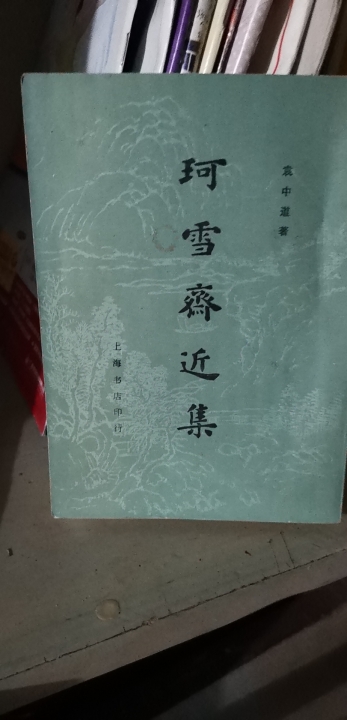 珂雪齋近集
袁中道著
上海书店印行